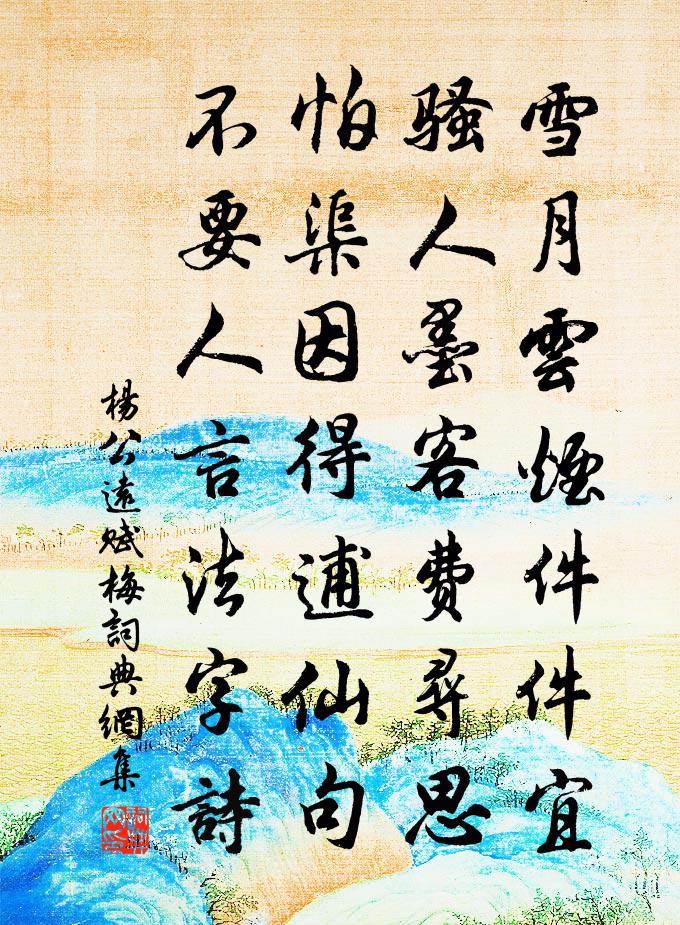 雪月雲煙件件宜
騷人墨客費尋思
怕渠因得逋仙句
不要人言法字詩
楊公遠賦梅詞典網集